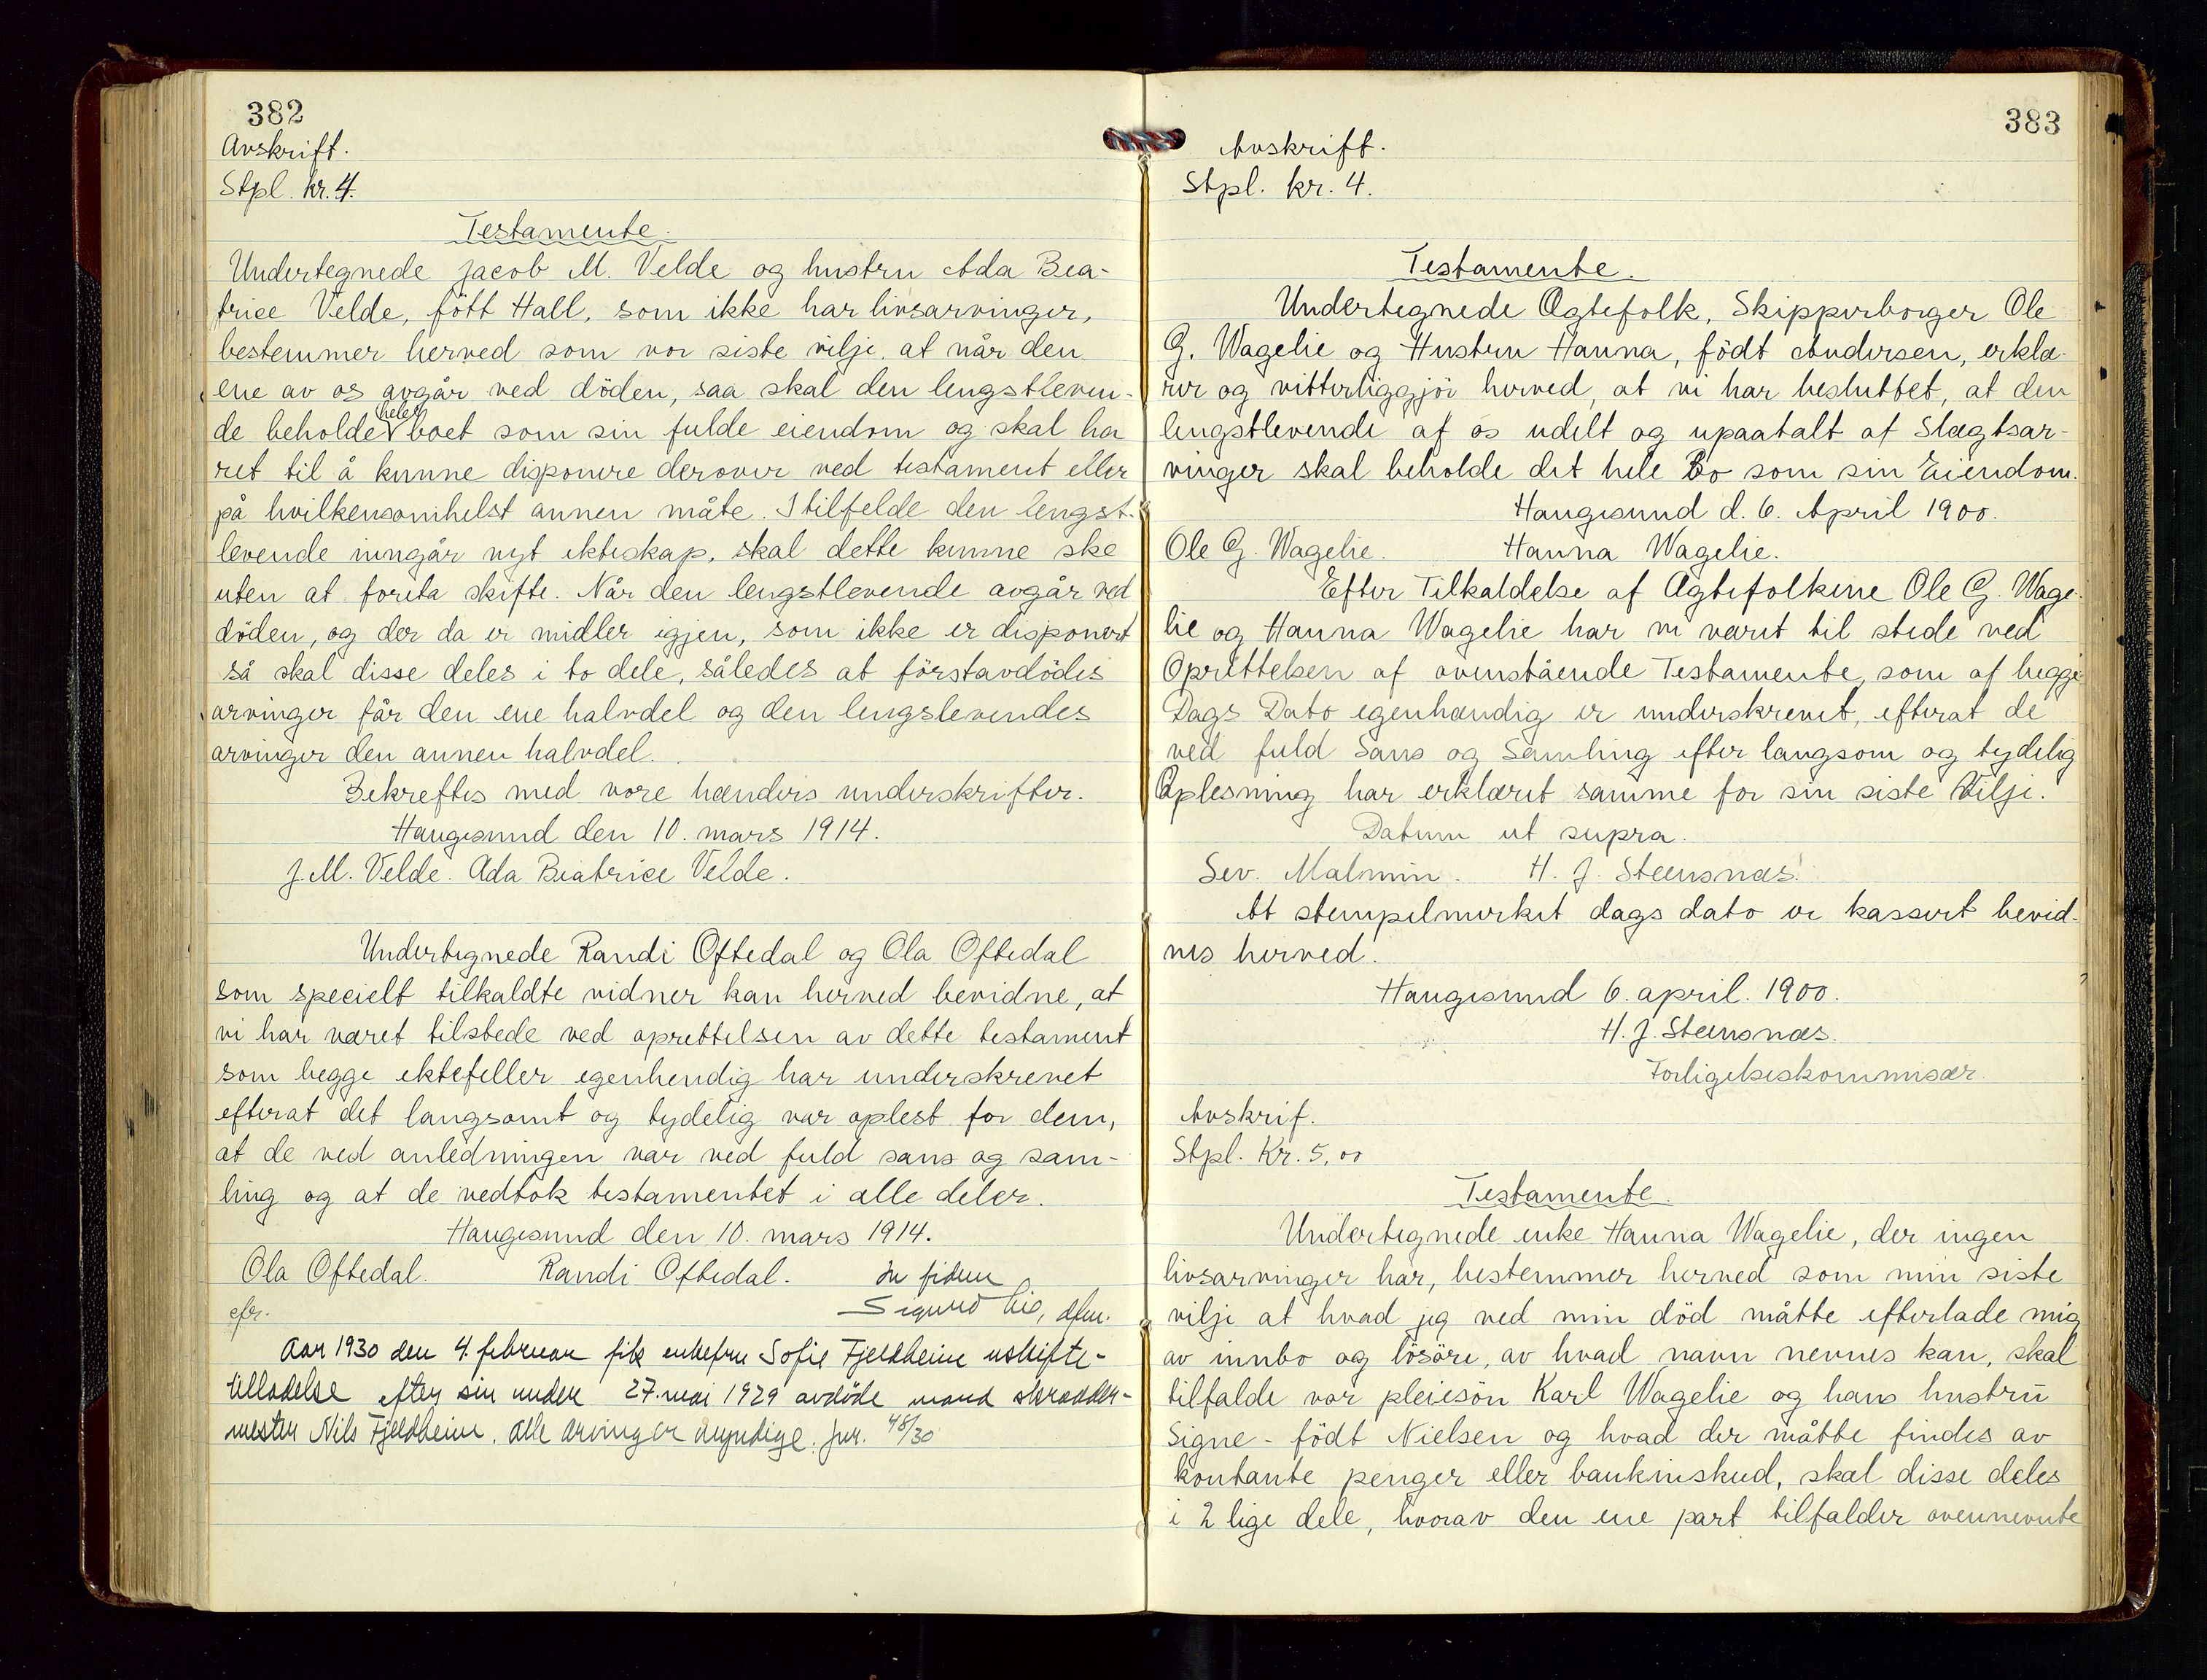 382
Avskrift.
Stpl. kr. 4.
Testamente.
Undertegnede Jacob M. Velde og hustru Ada Bea-
trice Velde, født Hall, som ikke har livsarvinger,
bestemmer herved som vor siste vilje, at når den
ene av os avgår ved döden, saa skal den lengstleven-
de beholde hele boet som sin fulde eiendom og skal ha
ret til å kunne disponere derover ved testament eller
på hvilkensomhelst annen måte. I tilfelde den lengst-
levende inngår nyt ekteskap, skal dette kunne ske
uten at foreta skifte. Når den lengstlevende avgår ved
döden, og der da er midler igjen, som ikke er disponert
så skal disse deles i to dele, således at förstavdödes
arvinger får den ene halvdel og den lengslevendes
arvinger den annen halvdel.
Bekreftes med vore hænders underskrifter.
Haugesund den 10. mars 1914.
J. M. Velde. Ada Beatrice Velde.
Undertegnede Randi Oftedal og Ola Oftedal
som specielt tilkaldte vidner kan herved bevidne, at
vi har været tilstede ved oprettelsen av dette testament
som begge ektefeller egenhendig har underskrevet
efterat det langsomt og tydelig var oplest for dem,
at de ved anledningen var ved fuld sans og sam-
ling og at de vedtok testamentet i alle deler.
Haugesund den 10. mars 1914.
Ola Oftedal. Randi Oftedal. In fidem
Sigurd Lie, dfm.
Aar 1930 den 4. februar fik enkefru Sofie Fjeldheim uskifte-
tilladelse efter sin under 27. mai 1929 avdöde mand skrædder-
mester Nils Fjeldheim. Alle arvinger myndige. Jnr. 48/30
383
Avskrift.
Stpl. kr. 4.
Testamente.
Undertegnede Ægtefolk, Skipperborger Ole
G. Wagelie og Hustru Hanna, födt Andersen, erklæ-
rer og vitterliggjör herved, at vi har besluttet, at den
lengstlevende af os udelt og upaatalt af Slægtsar-
vinger skal beholde det hele Bo som sin Eiendom.
Haugesund d. 6. April 1900.
Ole G. Wagelie. Hanna Wagelie.
Efter Tilkaldelse af Ægtefolkene Ole G. Wage-
lie og Hanna Wagelie har vi været til stede ved
Oprettelsen af ovenstående Testamente, som af begge
Dags Dato egenhændig er underskrevet, efterat de
ved fuld Sans og Samling efter langsom og tydelig
Oplesning har erklæret samme for sin siste Vilje.
Datum ut supra.
Sev. Malmin. H. J. Steensnæs.
At stempelmerket dags dato er kassert bevid-
nes herved.
Haugesund 6. april. 1900.
H. J. Steensnæs.
Forligelseskommisær.
Avskrif.
Stpl. Kr. 5,00
Testamente.
Undertegnede enke Hanna Wagelie, der ingen
livsarvinger har, bestemmer herved som min siste
vilje at hvad jeg ved min död måtte efterlade mig
av innbo og lösöre, av hvad navn nevnes kan, skal
tilfalde vor pleiesön Karl Wagelie og hans hustru
Signe - födt Nielsen og hvad der måtte findes av
kontante penger eller bankinskud, skal disse deles
i 2 lige dele, hvorav den ene part tilfalder ovennevnte